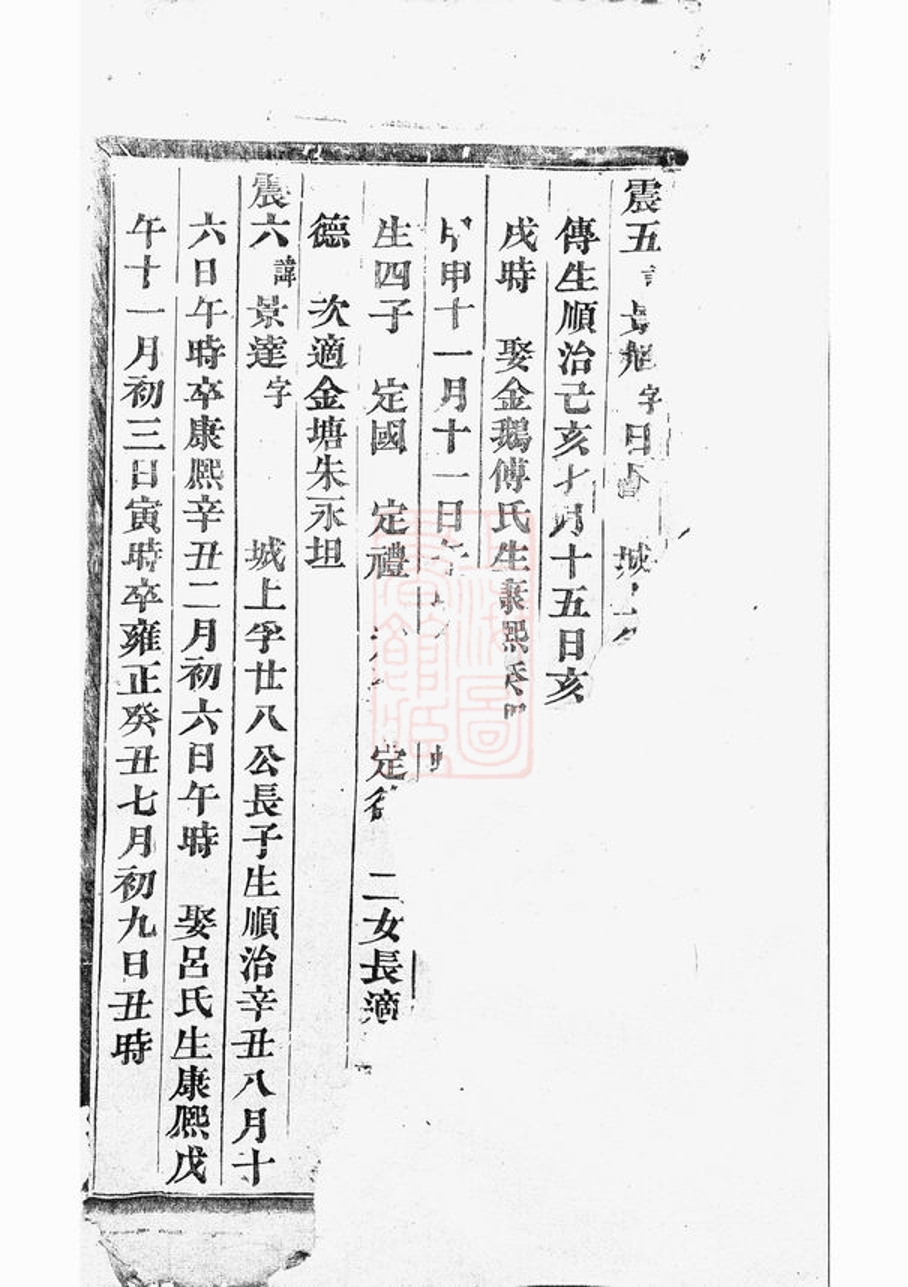 震五 字日
傳生順治己亥十月十五日亥
戌時 娶金鵝傅氏生康熙癸
甲申十一月十一日
生四子 定國 定禮 定 二女長適
德 次適金塘朱永坦
震六諱景達字 城上孚廿八公長子生順治辛丑八月十
六日午時卒康熙辛丑二月初六日午時 娶呂氏生康熙戊
午十一月初三日寅時卒雍正癸丑七月初九日丑時